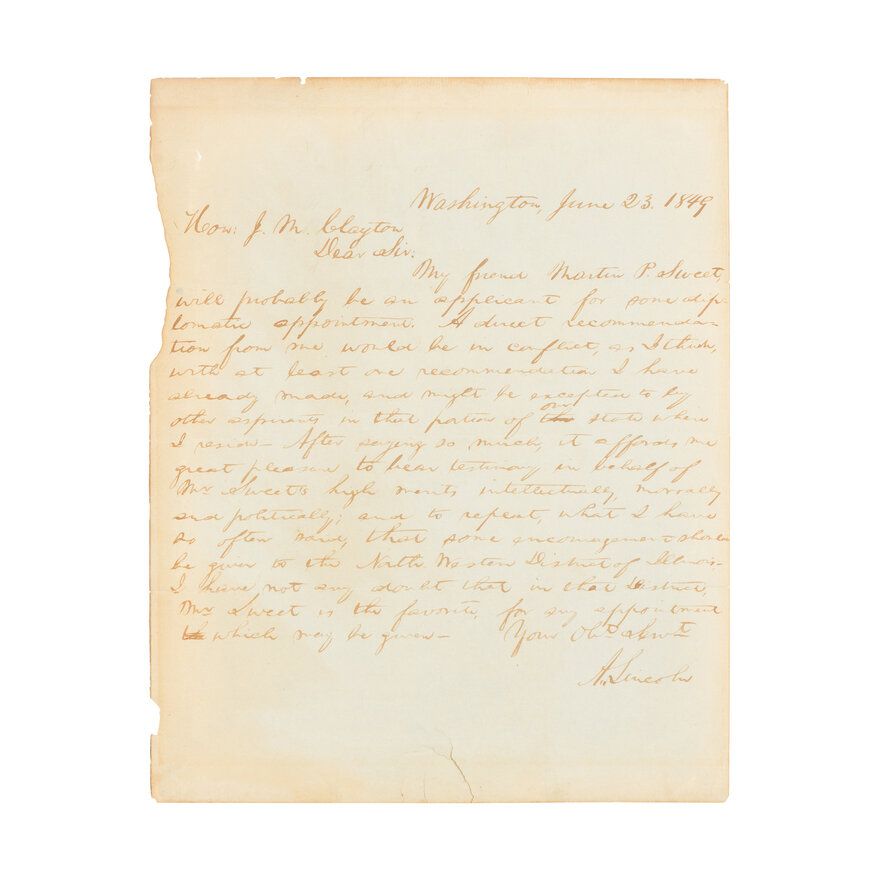 Washington, June 23. 1849
Hon: J. M. Clayton
Dear Sir:
My friend Martin P. Sweet,
will probably be an applicant for some dip-
lomatic appointment. A direct recommenda-
tion from me, would be in conflict, as I think,
with at least one recommendation I have
already made, and might be excepted to by
other aspirants in that portion of our state where
I reside— After saying so much, it affords me
great pleasure to bear testimony in behalf of
Mr Sweet's high merits intellectually, morally
and politically; and to repeat, what I have
so often said, that some encouragement should
be given to the North Western District of Illinois—
I have not any doubt that in that District,
Mr Sweet is the favorite, for any appointment
which may be given—  Your Obt Servt
A. Lincoln